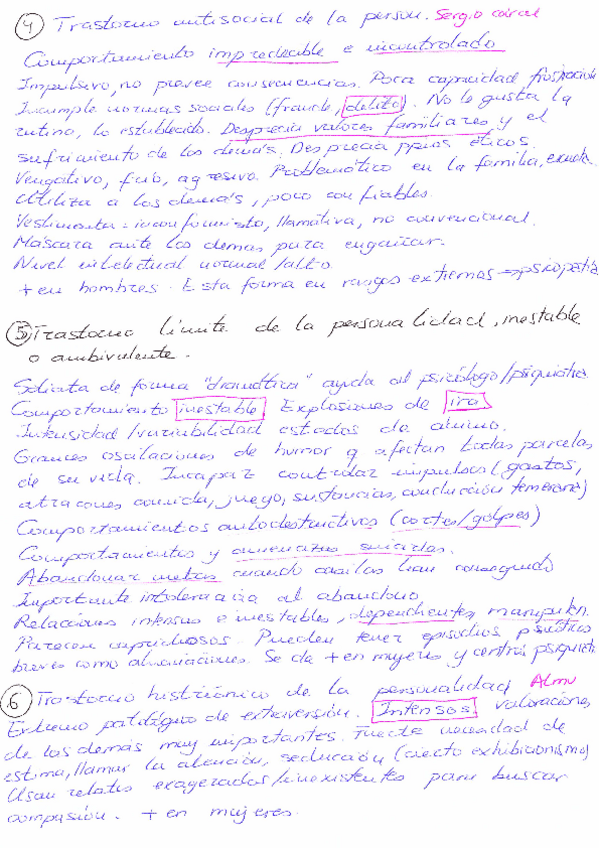 4) Trastorno antisocial de la person.
Comportamiento impredecible e incontrolado
Impulsivo, no prevee consecuencias. Poca capacidad
Incumple normas sociales (fraude, delito). No le gusta la
rutina, lo establecido. Desprecia valores familiares y el
sufrimiento de los demás. Desprecia ppios éticos.
Vengativo, frío, agresivo. Problemático en la familia,
Utiliza a los demás, poco confiables.
Vestimenta: inconformista, llamativa, no convencional.
Máscara ante los demas para engañar.
Nivel intelectual normal/alto
+ en hombres. Esta forma en rasgos extremos → psicopatía
5) Trastorno límite de la personalidad, inestable
o ambivalente.
Solicita de forma "dramática" ayuda al psicólogo/psiquiatra
Comportamiento inestable. Explosiones de ira
Intensidad/variabilidad estados de ánimo.
Grandes oscilaciones de humor q afectan todas parcelas
de su vida. Incapaz controlar impulsos (gastos,
atracones comida, juego, sustancias, conducción temeraria)
Comportamientos autodestructivos (cortes/golpes)
Comportamientos y amenazas suicidas.
Abandonar metas cuando casi las han conseguido
Importante intolerancia al abandono
Relaciones intensas e inestables, dependientes, manipuln.
Parecen caprichosos. Pueden tener episodios psicóticos
breves como alucinaciones. Se da + en mujeres y centros psiquiatr.
6) Trastorno histriónico de la personalidad
Extremo patológico de extraversión. Intensos, valoraciones
de los demás muy importantes. Fuerte necesidad de
estima, llamar la atención, seducción (cierto exhibicionismo)
Usan relatos exagerados/inexistentes para buscar
compasión. + en mujeres.